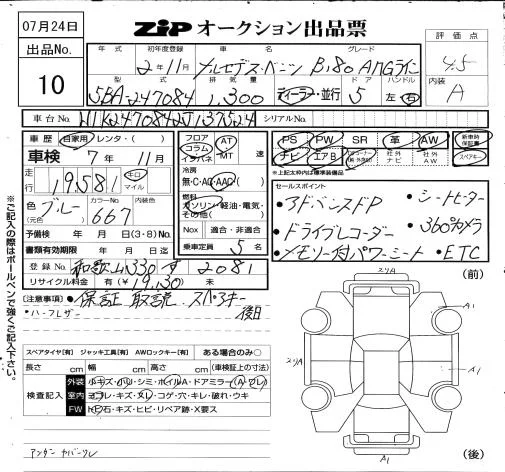 07月24日
ZiP オークション出品票
出品No. 10
年式 初年度登録 車名 グレード 評価点
2年11月 メルセデス・ベンツ B180 AMGライン 4.5
型式 排気量 ドア ハンドル 内装
5BA-247084 1,300 ディーラー・並行 5 左・右 A
車台No. W1K2470842J137524 シリアルNo.
車歴 自家用・レンタ・( )
車検 7年11月
走行 19,581 キロ マイル
色 ブルー カラーNo. 667 内装色
(元色)
予備検 年 月 日(3・8)No.
書類有効期限 年 月 日迄
登録No. 和歌山 330 す 2081
リサイクル料金 有(¥19,130) 未
フロア コラム インパネ AT MT 速
冷房 無・C・AC・AAC・( )
燃料 ガソリン・軽油・電気・その他( )
Nox 適合・非適合
乗車定員 5 名
PS PW SR 革 AW 新車時保証書
ナビ エアB 社外ナビ 社外AW スペアキー
※上記太枠内は標準装備品
セールスポイント
・アドバンスドP ・シートヒーター
・ドライブレコーダー ・360°カメラ
・メモリー付パワーシート ・ETC
注意事項 ・保証書 取説 スペアキー 後日
スペアタイヤ[有] ジャッキ工具[有] AWロックキー[有] ある場合のみ○
長さ cm 幅 cm 高さ cm (車検証上の寸法)
検査記入
外装 小キズ・小凹・シミ・ホイルA・ドアミラー(A・ワレ)
室内 ヨゴレ・キズ・スレ・コゲ・穴・キレ・破れ・ウキ
FW トビ石・キズ・ヒビ・リペア跡・X要ス
アンダーカバーワレ
(前)
A1
A1
A1
(後)
※ご記入の際はボールペンで強くご記入下さい。